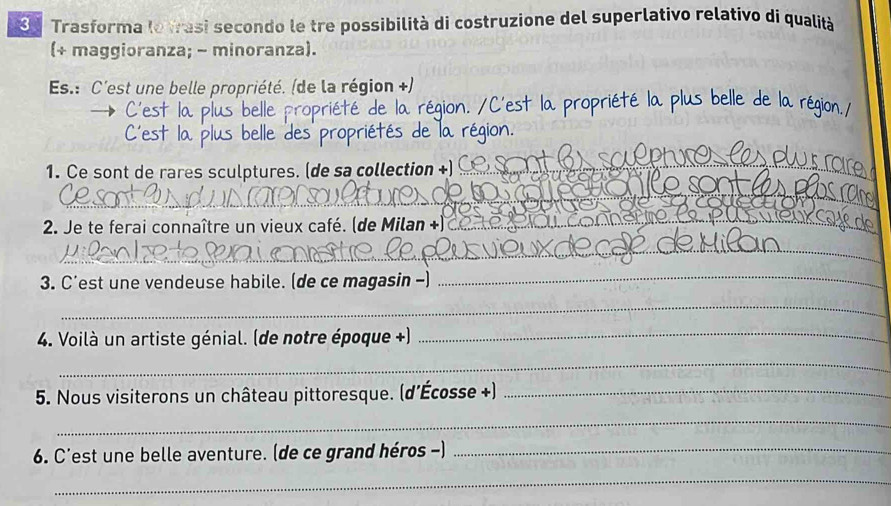 3 Trasforma le frasi secondo le tre possibilità di costruzione del superlativo relativo di qualità
(+ maggioranza; – minoranza).
Es.: C'est une belle propriété. (de la région +)
→ C'est la plus belle propriété de la région. /C'est la propriété la plus belle de la région./
C'est la plus belle des propriétés de la région.
1. Ce sont de rares sculptures. (de sa collection +) ce sont les sculptures les plus rare
Ce sont les plus rares sculptures de sa collection/ce sont les plus rare
des sculptures de sa collection
2. Je te ferai connaître un vieux café. (de Milan +) le plus vieux café de
Milan/je te ferai connaître le plus vieux de café de Milan
3. C'est une vendeuse habile. (de ce magasin –)
4. Voilà un artiste génial. (de notre époque +)
5. Nous visiterons un château pittoresque. (d'Écosse +)
6. C'est une belle aventure. (de ce grand héros –)